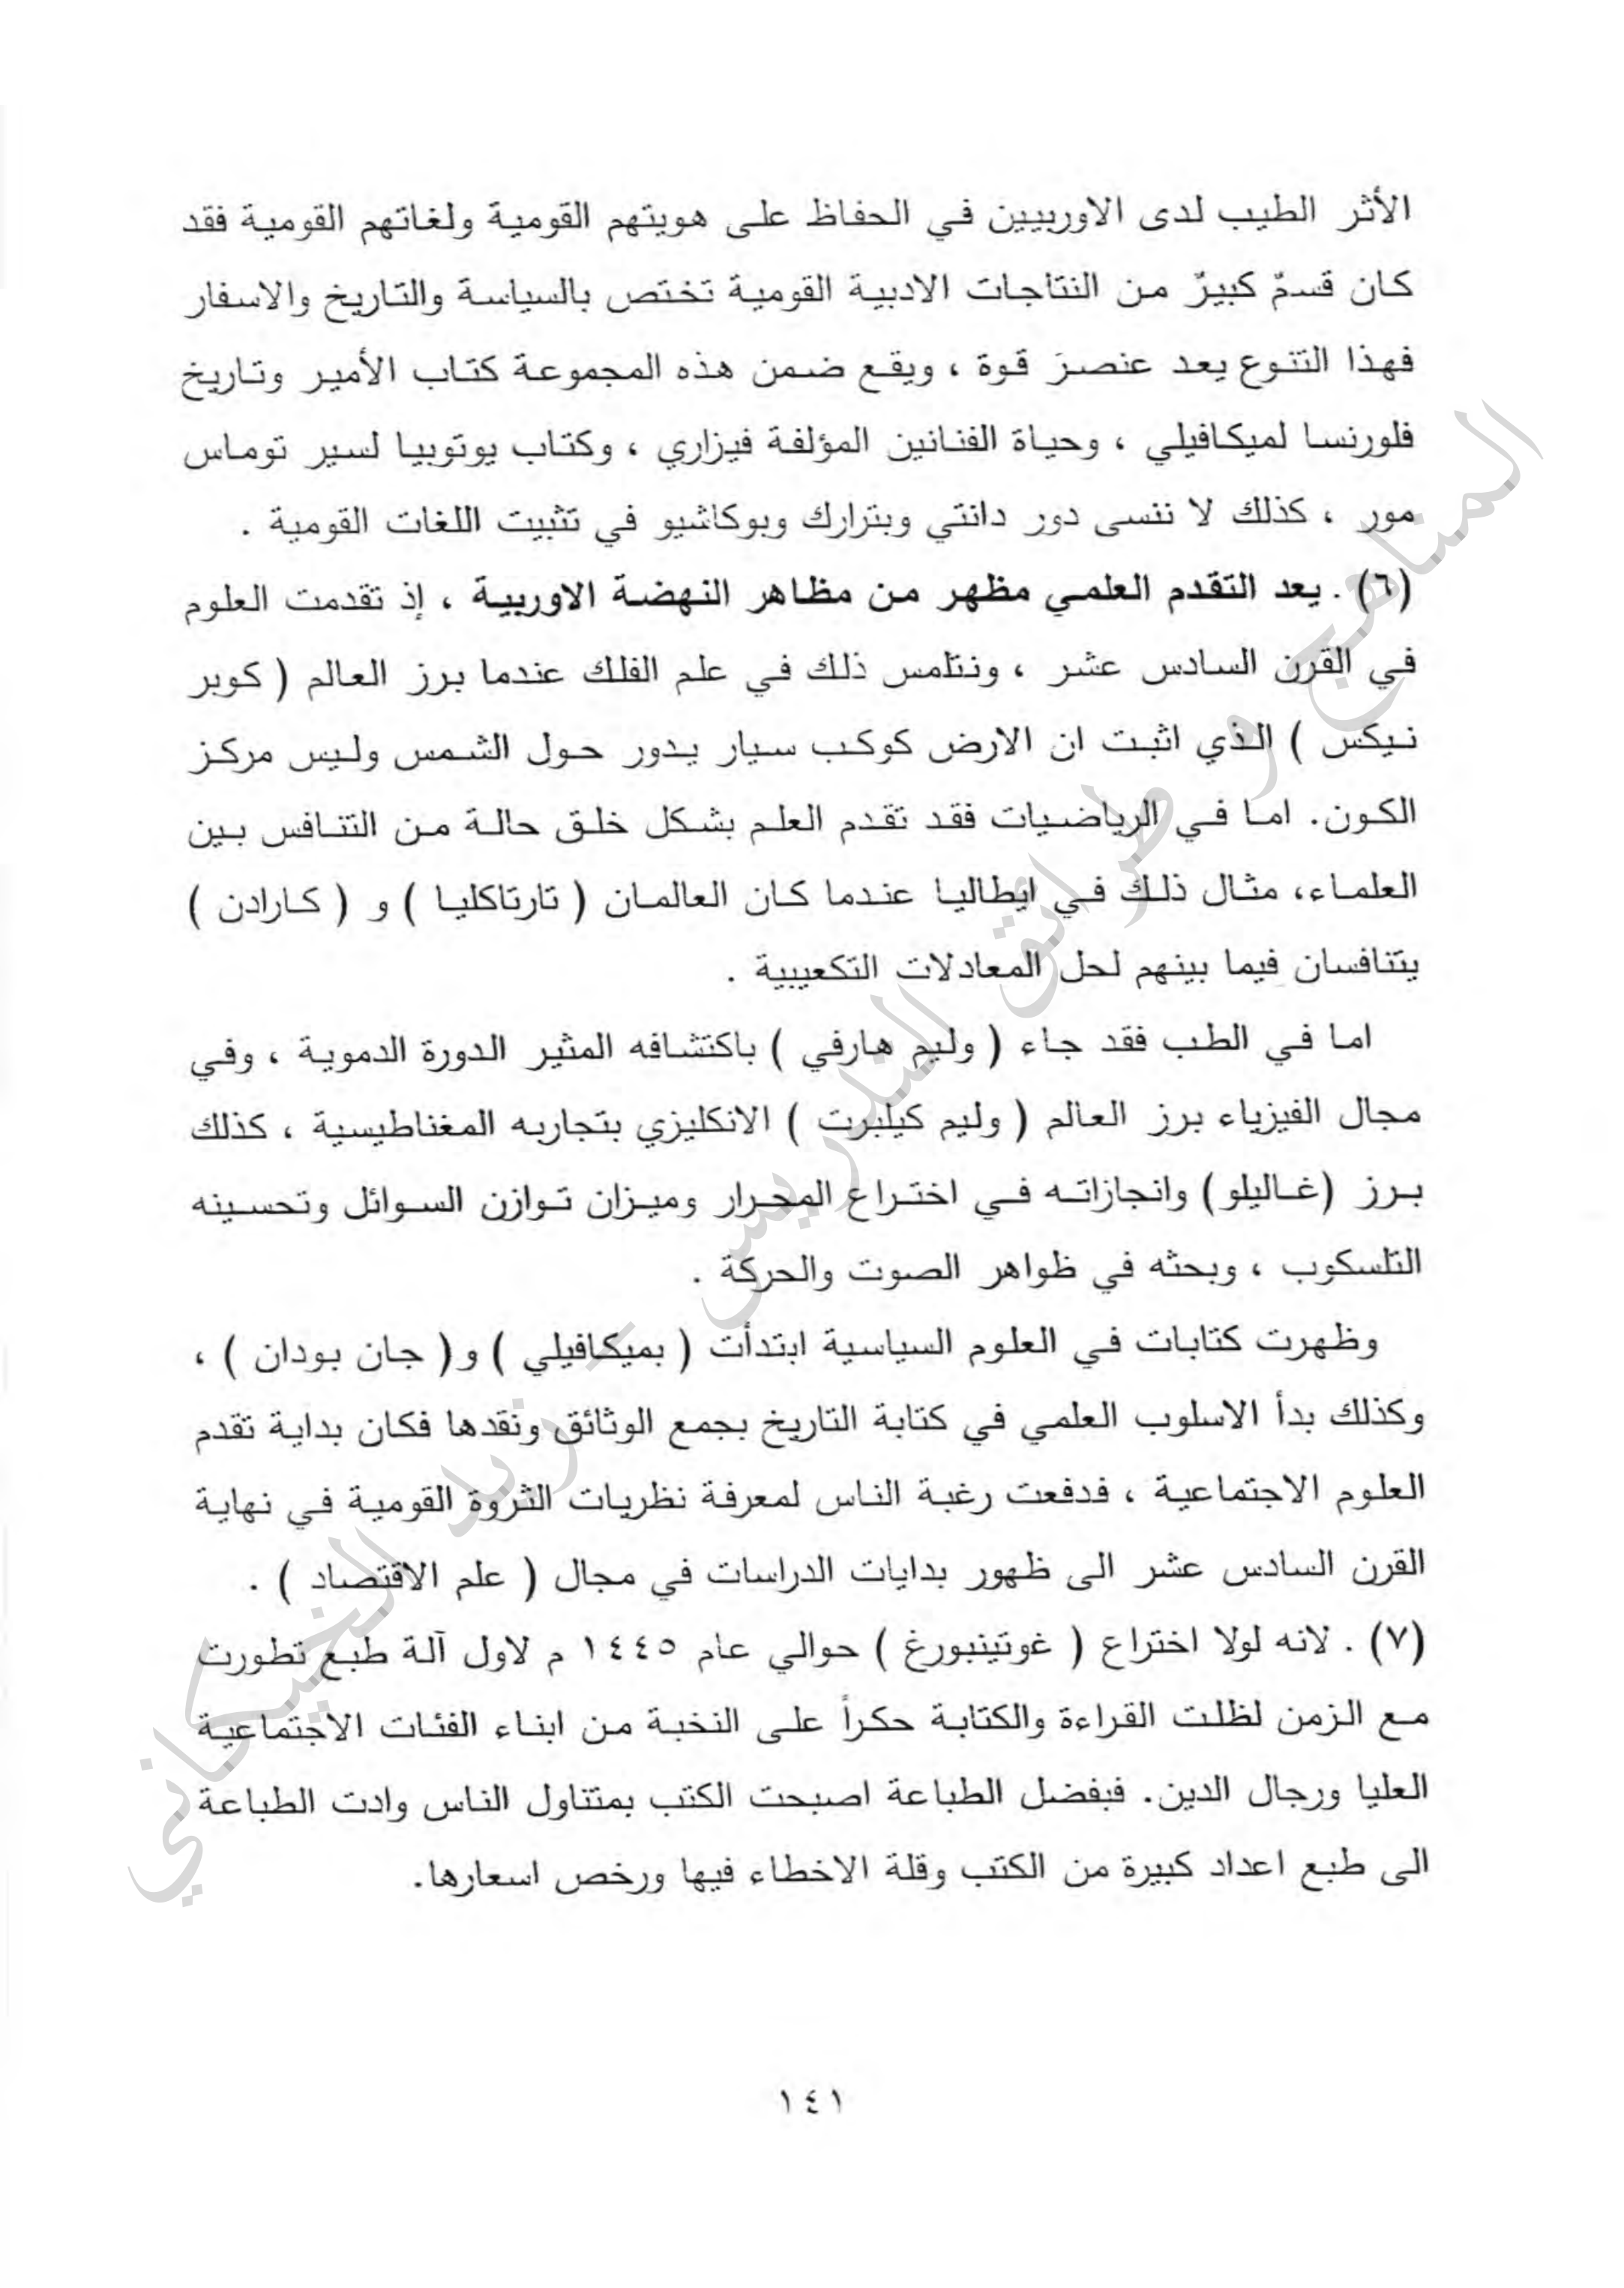 الأثر الطيب لدى الاوربيين في الحفاظ على هويتهم القومية ولغاتهم القومية فقد
كان قسمٌ كبيرٌ من النتاجات الادبية القومية تختص بالسياسة والتاريخ والاسفار
فهذا التنوع يعد عنصرَ قوة ، ويقع ضمن هذه المجموعة كتاب الأمير وتاريخ
فلورنسا لميكافيلي ، وحياة الفنانين المؤلفة فيزاري ، وكتاب يوتوبيا لسير توماس
مور ، كذلك لا ننسى دور دانتي وبترارك وبوكاشيو في تثبيت اللغات القومية .
(٦) . يعد التقدم العلمي مظهر من مظاهر النهضة الاوربية ، إذ تقدمت العلوم
في القرن السادس عشر ، ونتلمس ذلك في علم الفلك عندما برز العالم ( كوبر
نيكس ) الذي اثبت ان الارض كوكب سيار يدور حول الشمس وليس مركز
الكون. اما في الرياضيات فقد تقدم العلم بشكل خلق حالة من التنافس بين
العلماء، مثال ذلك في ايطاليا عندما كان العالمان ( تارتاكليا ) و ( كارادن )
يتنافسان فيما بينهم لحل المعادلات التكعيبية .
اما في الطب فقد جاء ( وليم هارفي ) باكتشافه المثير الدورة الدموية ، وفي
مجال الفيزياء برز العالم ( وليم كيلبرت ) الانكليزي بتجاربه المغناطيسية ، كذلك
برز (غاليلو) وانجازاته في اختراع المحرار وميزان توازن السوائل وتحسينه
التلسكوب ، وبحثه في ظواهر الصوت والحركة .
وظهرت كتابات في العلوم السياسية ابتدأت ( بميكافيلي ) و( جان بودان ) ،
وكذلك بدأ الاسلوب العلمي في كتابة التاريخ بجمع الوثائق ونقدها فكان بداية تقدم
العلوم الاجتماعية ، فدفعت رغبة الناس لمعرفة نظريات الثروة القومية في نهاية
القرن السادس عشر الى ظهور بدايات الدراسات في مجال ( علم الاقتصاد ) .
(٧) . لانه لولا اختراع ( غوتينبورغ ) حوالي عام ١٤٤٥ م لاول آلة طبع تطورت
مع الزمن لظلت القراءة والكتابة حكراً على النخبة من ابناء الفئات الاجتماعية
العليا ورجال الدين. فبفضل الطباعة اصبحت الكتب بمتناول الناس وادت الطباعة
الى طبع اعداد كبيرة من الكتب وقلة الاخطاء فيها ورخص اسعارها.
١٤١
المناهج و طرائق التدريس - رند الخيكاني